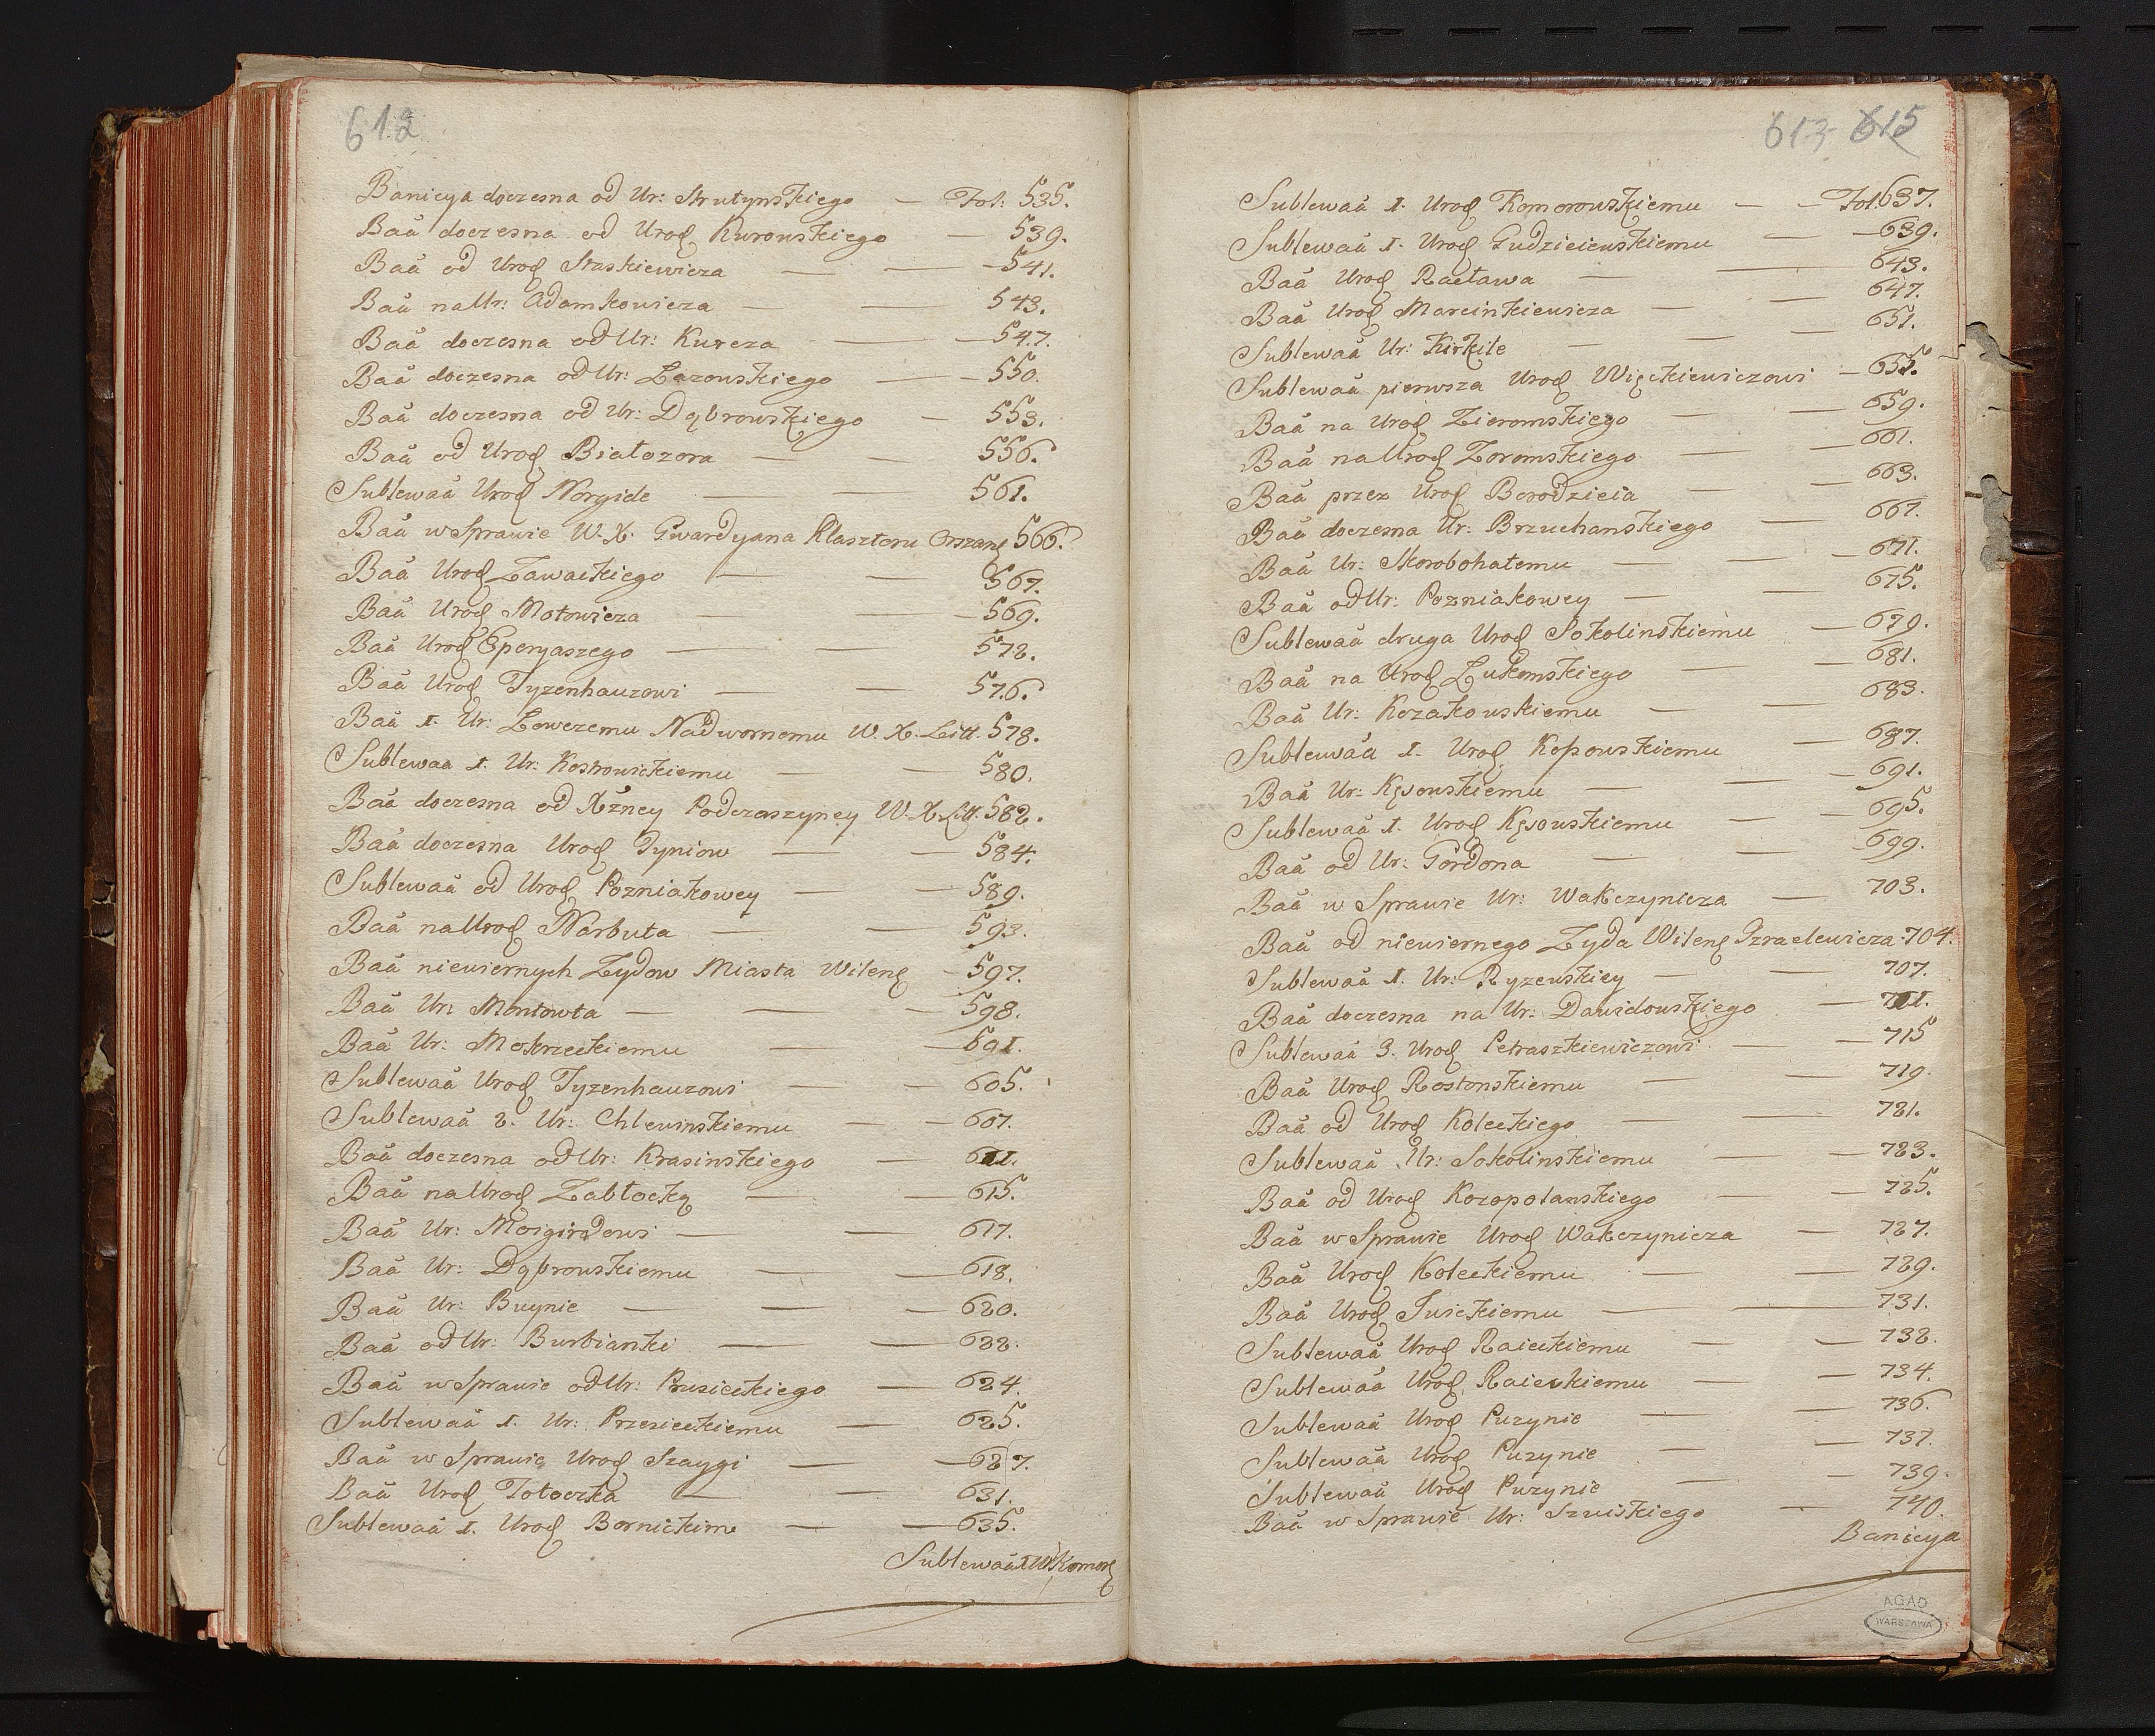 612
Banicya doczesna od Ur: Strutynskiego — Fol: 535.
Baä doczesna od Urod Kurowskiego — 539.
Baä od Urod Staskiewicza — — 541.
Baä na Ur: Adamkowicza — — 543.
Baä doczesna od Ur: Kurcza — — 547.
Baä doczesna od Ur: Lazowskiego — — 550.
Baä doczesna od Ur: Dąbrowskiego — 553.
Baä od Urod Białozora — — 556.
Sublewaä Urod Norgide — — 561.
Baä w Sprawie W. X. Gwardyana Klasztoru Orszanſ 566.
Baä Urod Zawackiego — — 567.
Baä Urod Motowicza — — 569.
Baä Urod Eperyaszego — — 572.
Baä Urod Tyzenhauzowi — — 576.
Baä 1. Ur: Lowczemu Nadwornemu W. X. Litt. 578.
Sublewaä 1. Ur: Kostrowickiemu — — 580.
Baä doczesna od Xżney Podczaszyney W. X. Litt. 582.
Baä doczesna Urod Pyniow — — 584.
Sublewaä od Urod Pozniakowey — — 589.
Baä na Urod Narbuta — — 593.
Baä niewiernych Zydow Miasta Wilenſ — 597.
Baä Ur: Montowta — — — 598.
Baä Ur: Mokrzeckiemu — — 601.
Sublewaä Urod Tyzenhauzowi — — 605.
Sublewaä 2. Ur: Chlewinskiemu — — 607.
Baä doczesna od Ur: Krasinskiego — 611.
Baä na Urod Zabłocką — — 615.
Baä Ur: Moigirdowi — — 617.
Baä Ur: Dąbrowskiemu — — 618.
Baä Ur: Buynie — — — 620.
Baä od Ur: Burbianki — — 622.
Baä w Sprawie od Ur: Prusieckiego — 624.
Sublewaä 1. Ur: Przesieckiemu — 625.
Baä w Sprawie Urod Szaygi — — 627.
Baä Urod Totoczka — — 631.
Sublewaä 1. Urod Bornickim — — 635.
Sublewaä 1 Ur Komorſ
613 615
Sublewaä 1. Urod Komorowskiemu — — Fol 637.
Sublewaä 1. Urod Gudzieiewskiemu — — 639.
Baä Urod Racława — — 643.
Baä Urod Marcinkiewicza — — 647.
Sublewaä Ur: Kirkile — — — 651.
Sublewaä pierwsza Urod Więckiewiczowi — 655.
Baä na Urod Zieromskiego — — 659.
Baä na Urod Zoromskiego — — 661.
Baä przez Urod Borodzicia — — 663.
Baä doczesna Ur: Brzuchanskiego — 667.
Baä Ur: Skorobohatemu — — 671.
Baä od Ur: Pozniakowey — — 675.
Sublewaä druga Urod Sokolinskiemu — 679.
Baä na Urod Łukomskiego — — 681.
Baä Ur: Kozakowskiemu — — 683.
Sublewaä 1. Urod Kopowskiemu — 687.
Baä Ur: Kęsowskiemu — — 691.
Sublewaä 1. Urod Kęsowskiemu — — 695.
Baä od Ur: Gordona — — 699.
Baä w Sprawie Ur: Wakczynicza — 703.
Baä od niewiernego Zyda Wilenſ Izraelewicza 704.
Sublewaä 1. Ur: Ryzewskiey — — 707.
Baä doczesna na Ur: Dawidowskiego — 711.
Sublewaä 3. Urod Petraszkiewiczowi — — 715
Baä Urod Rostonskiemu — — 719.
Baä od Urod Koleckiego — — 721.
Sublewaä Ur: Sokolinskiemu — — 723.
Baä od Urod Kozopolanskiego — — 725.
Baä w Sprawie Urod Wakczynicza — 727.
Baä Urod Koleckiemu — — 729.
Baä Urod Juickiemu — — 731.
Sublewaä Urod Raieckiemu — — 732.
Sublewaä Urod Raieckiemu — — 734.
Sublewaä Urod Puzynie — — 736.
Sublewaä Urod Puzynie — — 737.
Sublewaä Urod Puzynie — — 739.
Baä w Sprawie Ur: Szuiskiego — 740.
Banicya
AGAD
WARSZAWA